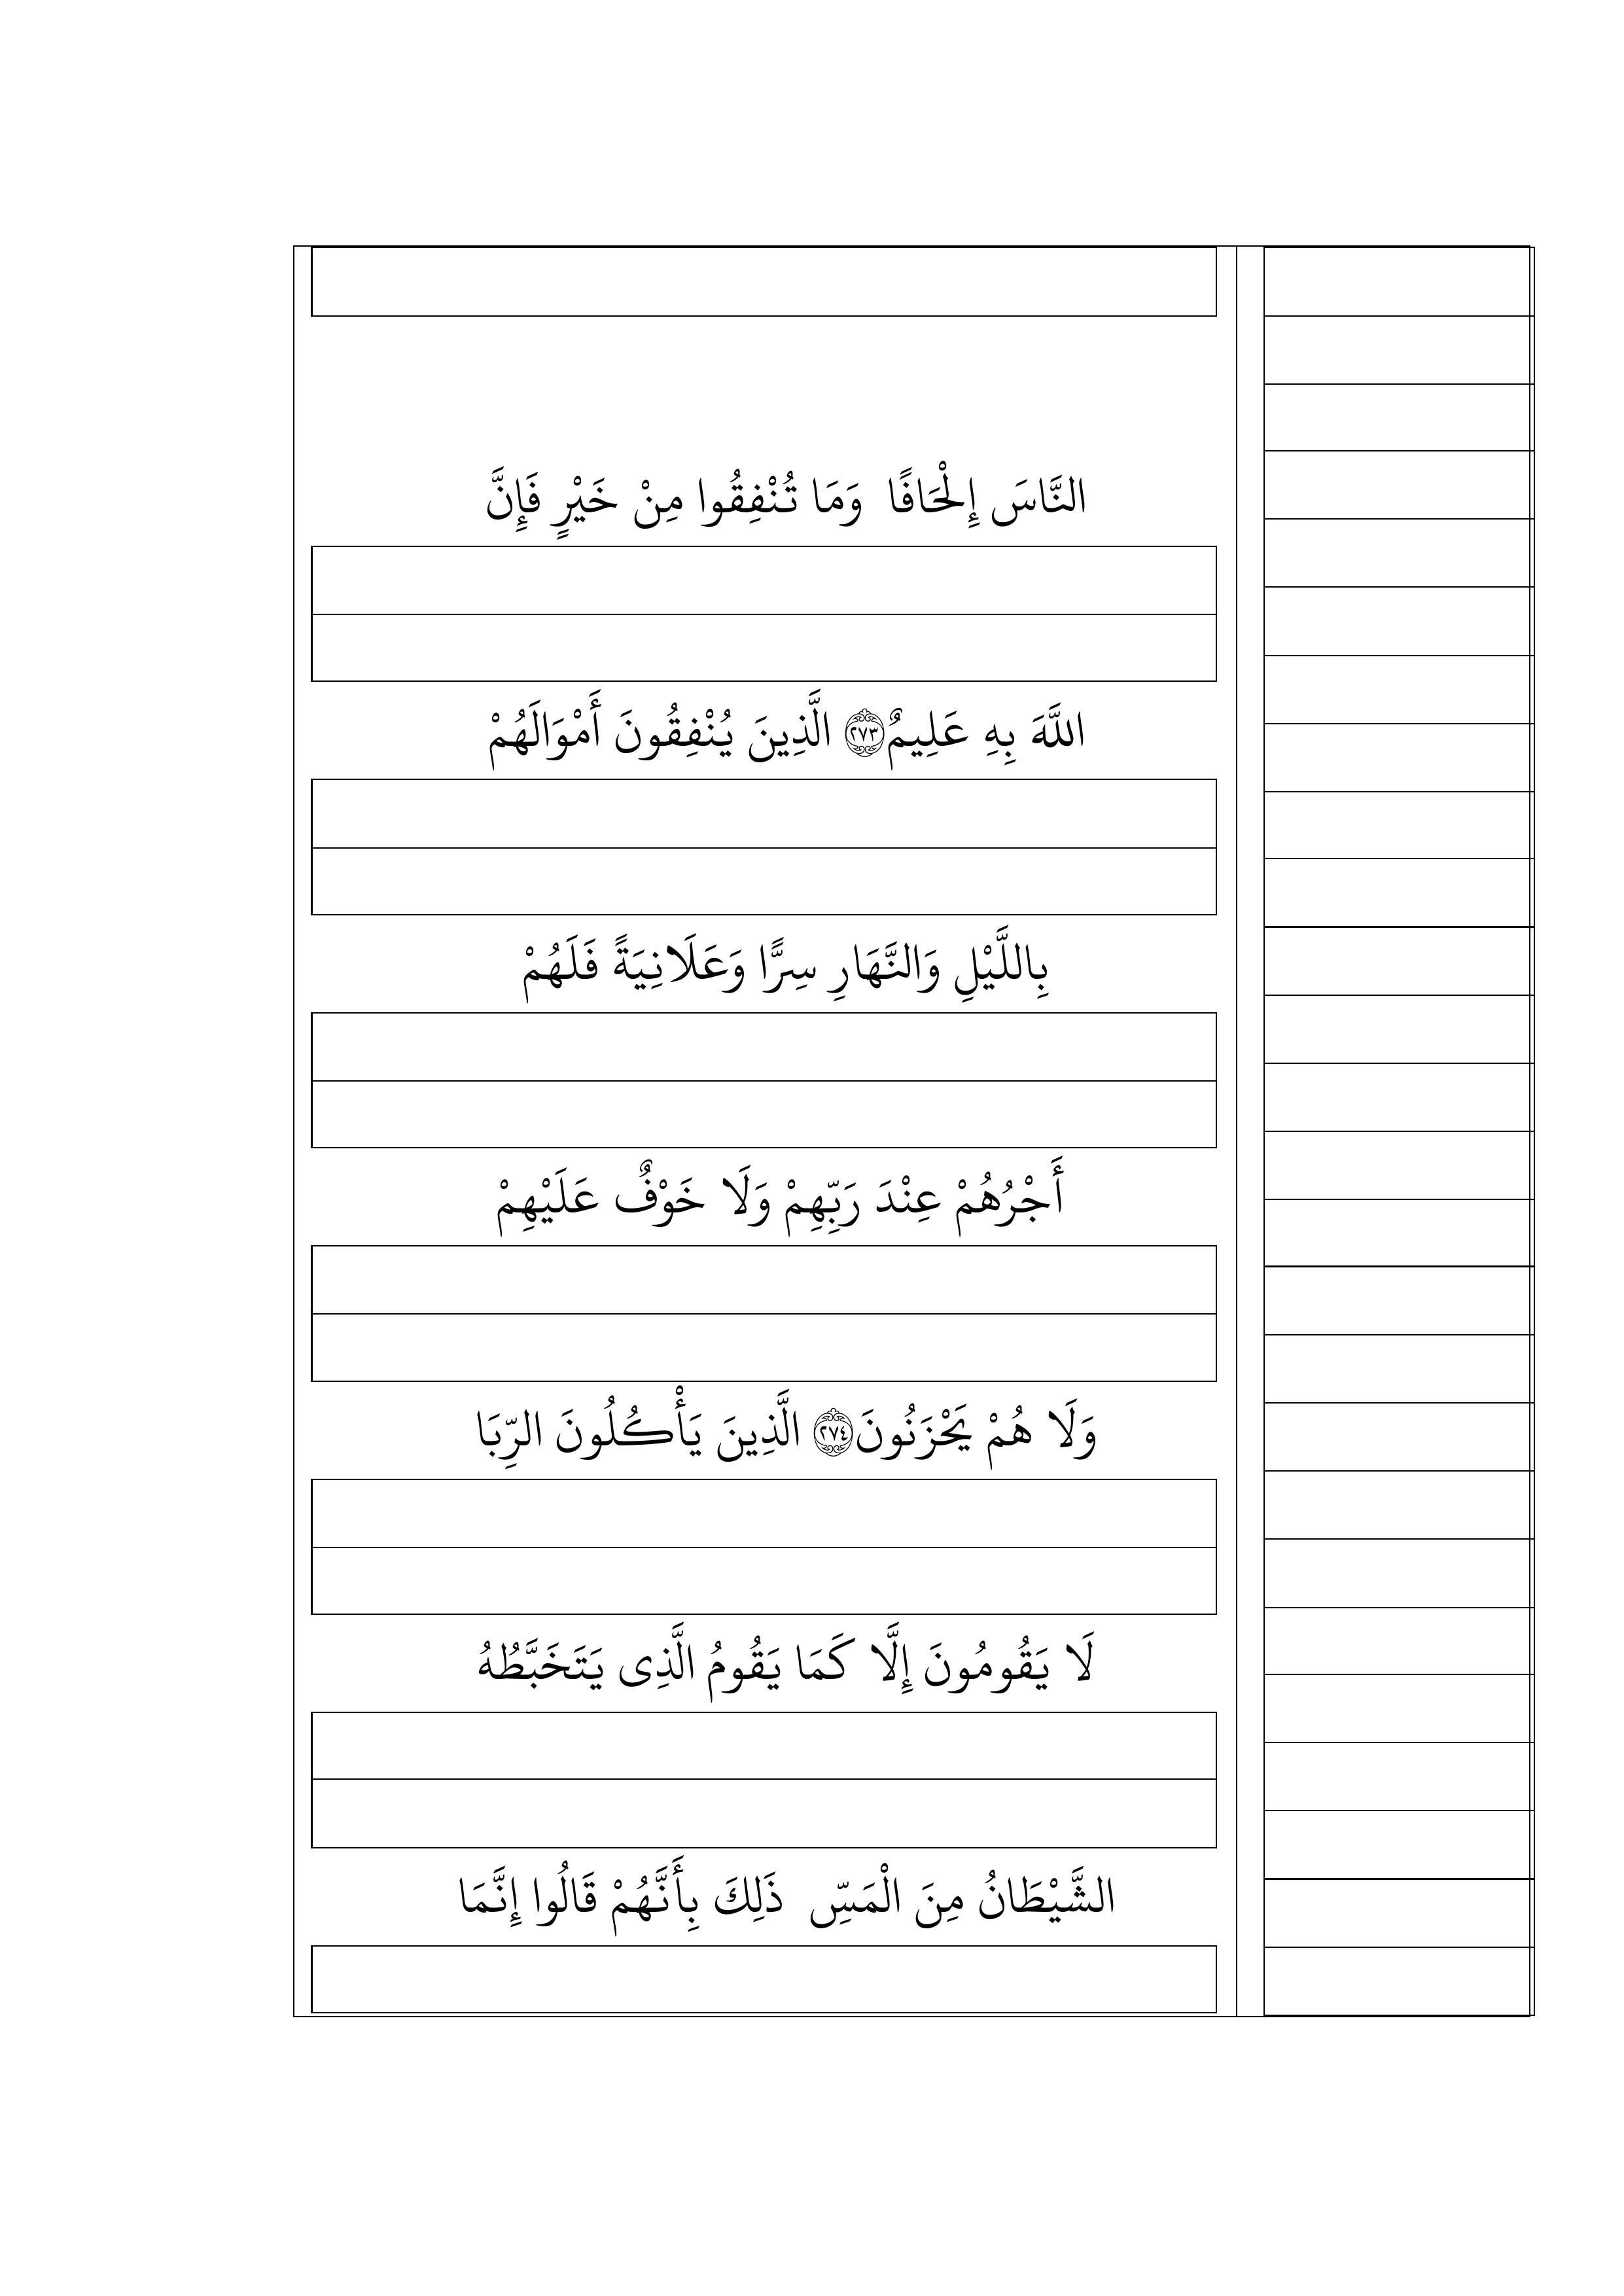 النَّاسَ إِلْحَافًا وَمَا تُنْفِقُوا مِنْ خَيْرٍ فَإِنَّ
اللَّهَ بِهِ عَلِيمٌ ﴿٢٧٣﴾ الَّذِينَ يُنْفِقُونَ أَمْوَالَهُمْ
بِاللَّيْلِ وَالنَّهَارِ سِرًّا وَعَلَانِيَةً فَلَهُمْ
أَجْرُهُمْ عِنْدَ رَبِّهِمْ وَلَا خَوْفٌ عَلَيْهِمْ
وَلَا هُمْ يَحْزَنُونَ ﴿٢٧٤﴾ الَّذِينَ يَأْكُلُونَ الرِّبَا
لَا يَقُومُونَ إِلَّا كَمَا يَقُومُ الَّذِى يَتَخَبَّطُهُ
الشَّيْطَانُ مِنَ الْمَسِّ ذَلِكَ بِأَنَّهُمْ قَالُوا إِنَّمَا